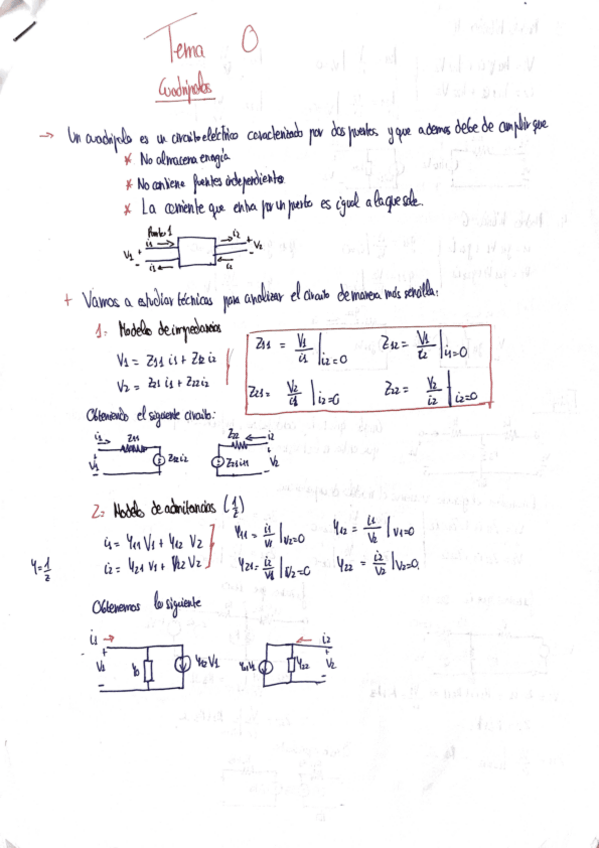 Tema 0
Cuadripolos
→ Un cuadripolo es un circuito eléctrico caracterizado por dos puertos, y que ademas debe de cumplir que
* No almacena energía
* No contiene fuentes independientes
* La corriente que entra por un puerto es igual a la que sale.
Puerto 1
i1 i2
V1 + - + - V2
i1 i2
+ Vamos a estudiar técnicas para analizar el circuito de manera más sencilla:
1. Modelo de impedancias
V1 = Z11 i1 + Z12 i2
V2 = Z21 i1 + Z22 i2
Z11 = V1/i1 | i2=0 Z12 = V1/i2 | i1=0
Z21 = V2/i1 | i2=0 Z22 = V2/i2 | i2=0
Obteniendo el siguiente circuito:
i1 Z11 Z22 i2
V1 + - Z12 i2 Z21 i1 + - V2
2. Modelo de admitancias (1/Z)
i1 = Y11 V1 + Y12 V2
i2 = Y21 V1 + Y22 V2
Y11 = i1/V1 | V2=0 Y12 = i1/V2 | V1=0
Y21 = i2/V1 | V2=0 Y22 = i2/V2 | V2=0
Y = 1/Z
Obtenemos lo siguiente
i1 → ← i2
V1 + - Y12 V1 Y22 + - V2